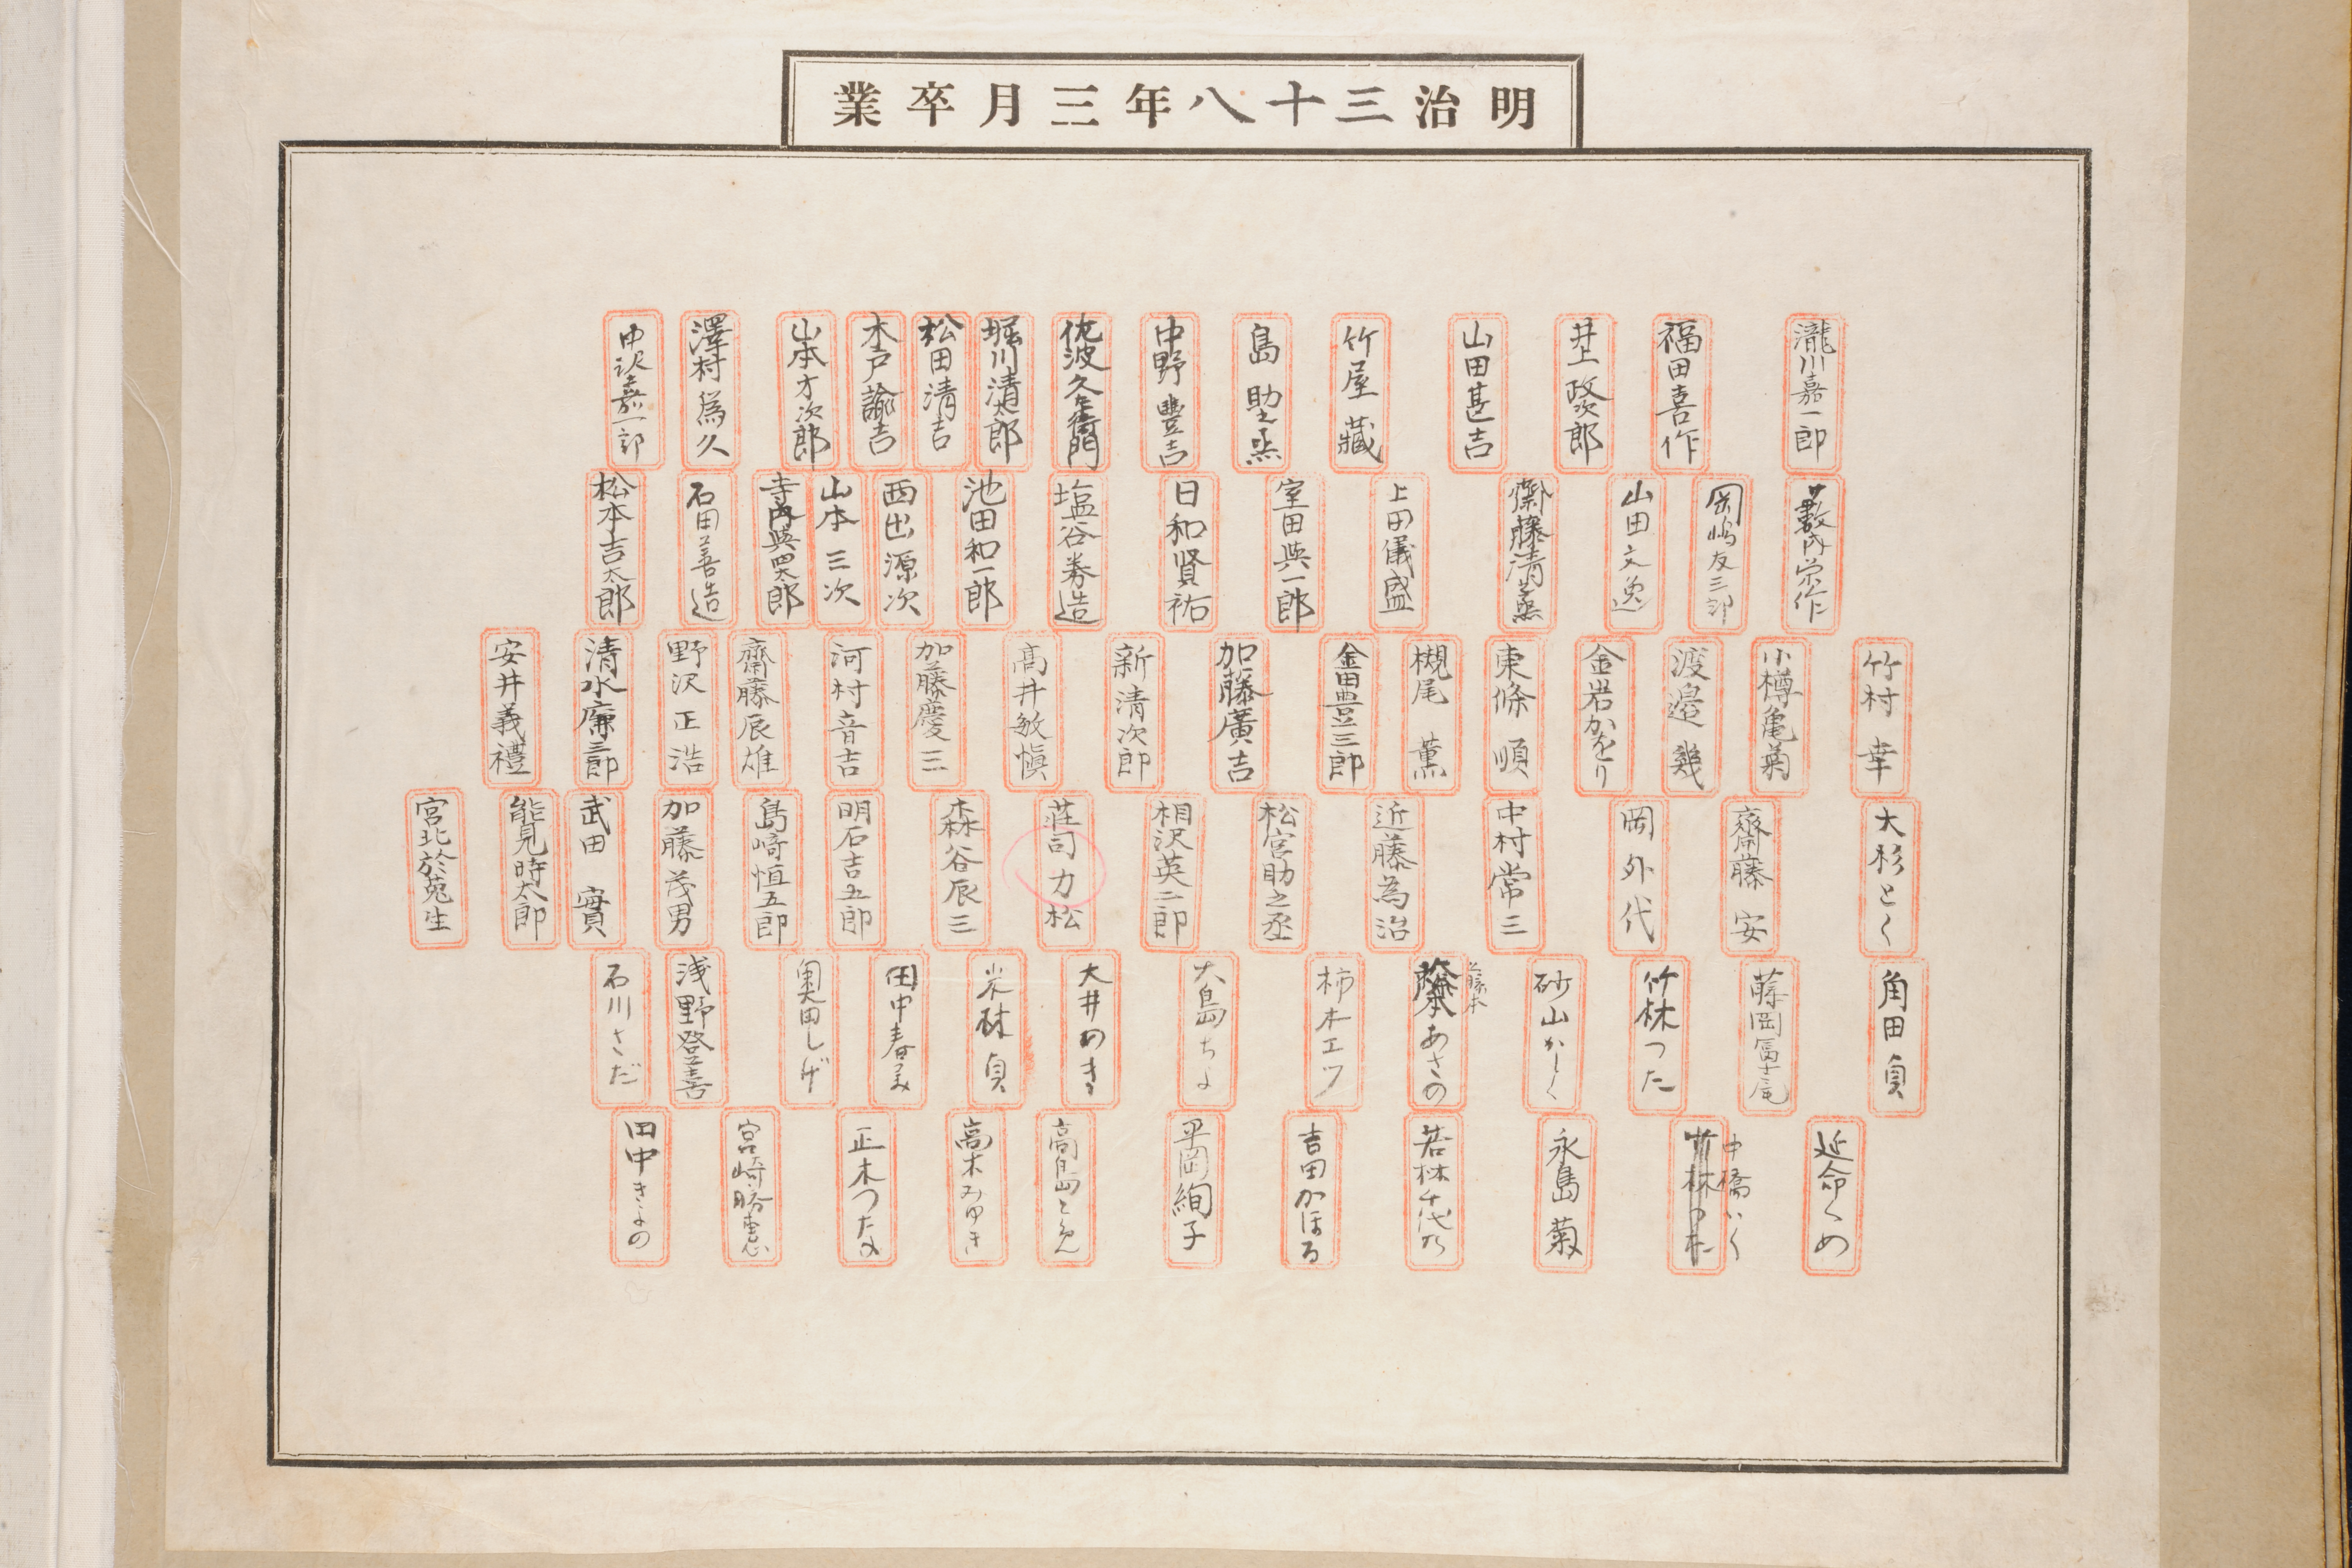 明治三十八年三月卒業
瀧川嘉一郎
福田喜作
井上政次郎
山田甚吉
竹屋藏
島助之丞
中野豊吉
佐波久左衛門
堀川清太郎
松田清吉
木戸諭吉
山本才次郎
澤村為久
中沢嘉一郎
藪内栄作
岡嶋友三郎
山田文逸
齋藤清蒸
上田儀盛
室田與一郎
日和賢祐
塩谷券造
池田和一郎
西出源次
山本三次
寺内與四太郎
石田善造
松本吉太郎
竹村幸
小樽亀菊
渡邉幾
金岩かをり
東條順
槻尾薫
金田豊三郎
加藤廣吉
新清次郎
髙井敏愼
加藤慶三
河村音吉
齋藤辰雄
野沢正浩
清水廉三郎
安井義禮
大杉とく
齋藤安
岡外代
中村常三
近藤為治
松宮助之丞
相沢英二郎
荘司力松
森谷辰三
明石吉五郎
島﨑恒五郎
加藤茂男
武田實
能見時太郎
宮北於菟生
角田貞
藤岡冨士尾
竹林つた
砂山かく
藤本
あさの
柿木エツ
大島ちよ
大井のき
米林貞
田中春美
奥田しげ
浅野登喜
石川さだ
延命くめ
中橋いく
竹林つた
永島菊
若林千代乃
吉田かほる
平岡絢子
高島とめ
高木みゆき
正木つたの
宮崎勝恵
田中きよの